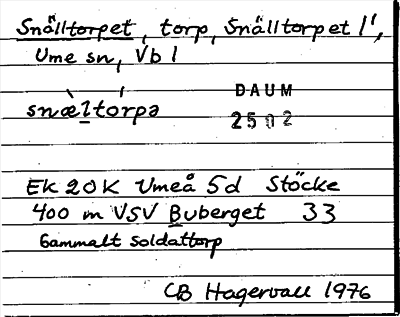 Snälltorpet, torp, Snälltorpet 1¹,
Ume sn, Vb l
snæ̀ltórpə
DAUM
2502
EK 20K Umeå 5d Stöcke
400 m VSV Buberget 33
Gammalt soldattorp
CB Hagervall 1976